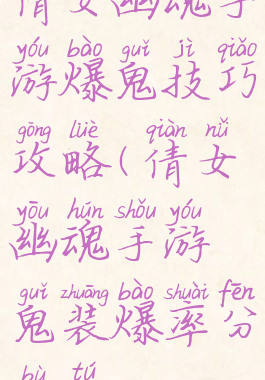 倩女幽魂手
yóu bào guǐ jì qiǎo
游爆鬼技巧
gōng lüè qiàn nǚ
攻略(倩女
yōu hún shǒu yóu
幽魂手游
guǐ zhuāng bào shuài fēn
鬼装爆率分
bù tú